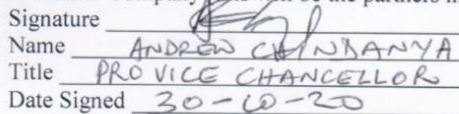 be the partners
Signature
Name ANDREW CHINDANYA
Title PRO VICE CHANCELLOR
Date Signed 30-10-20